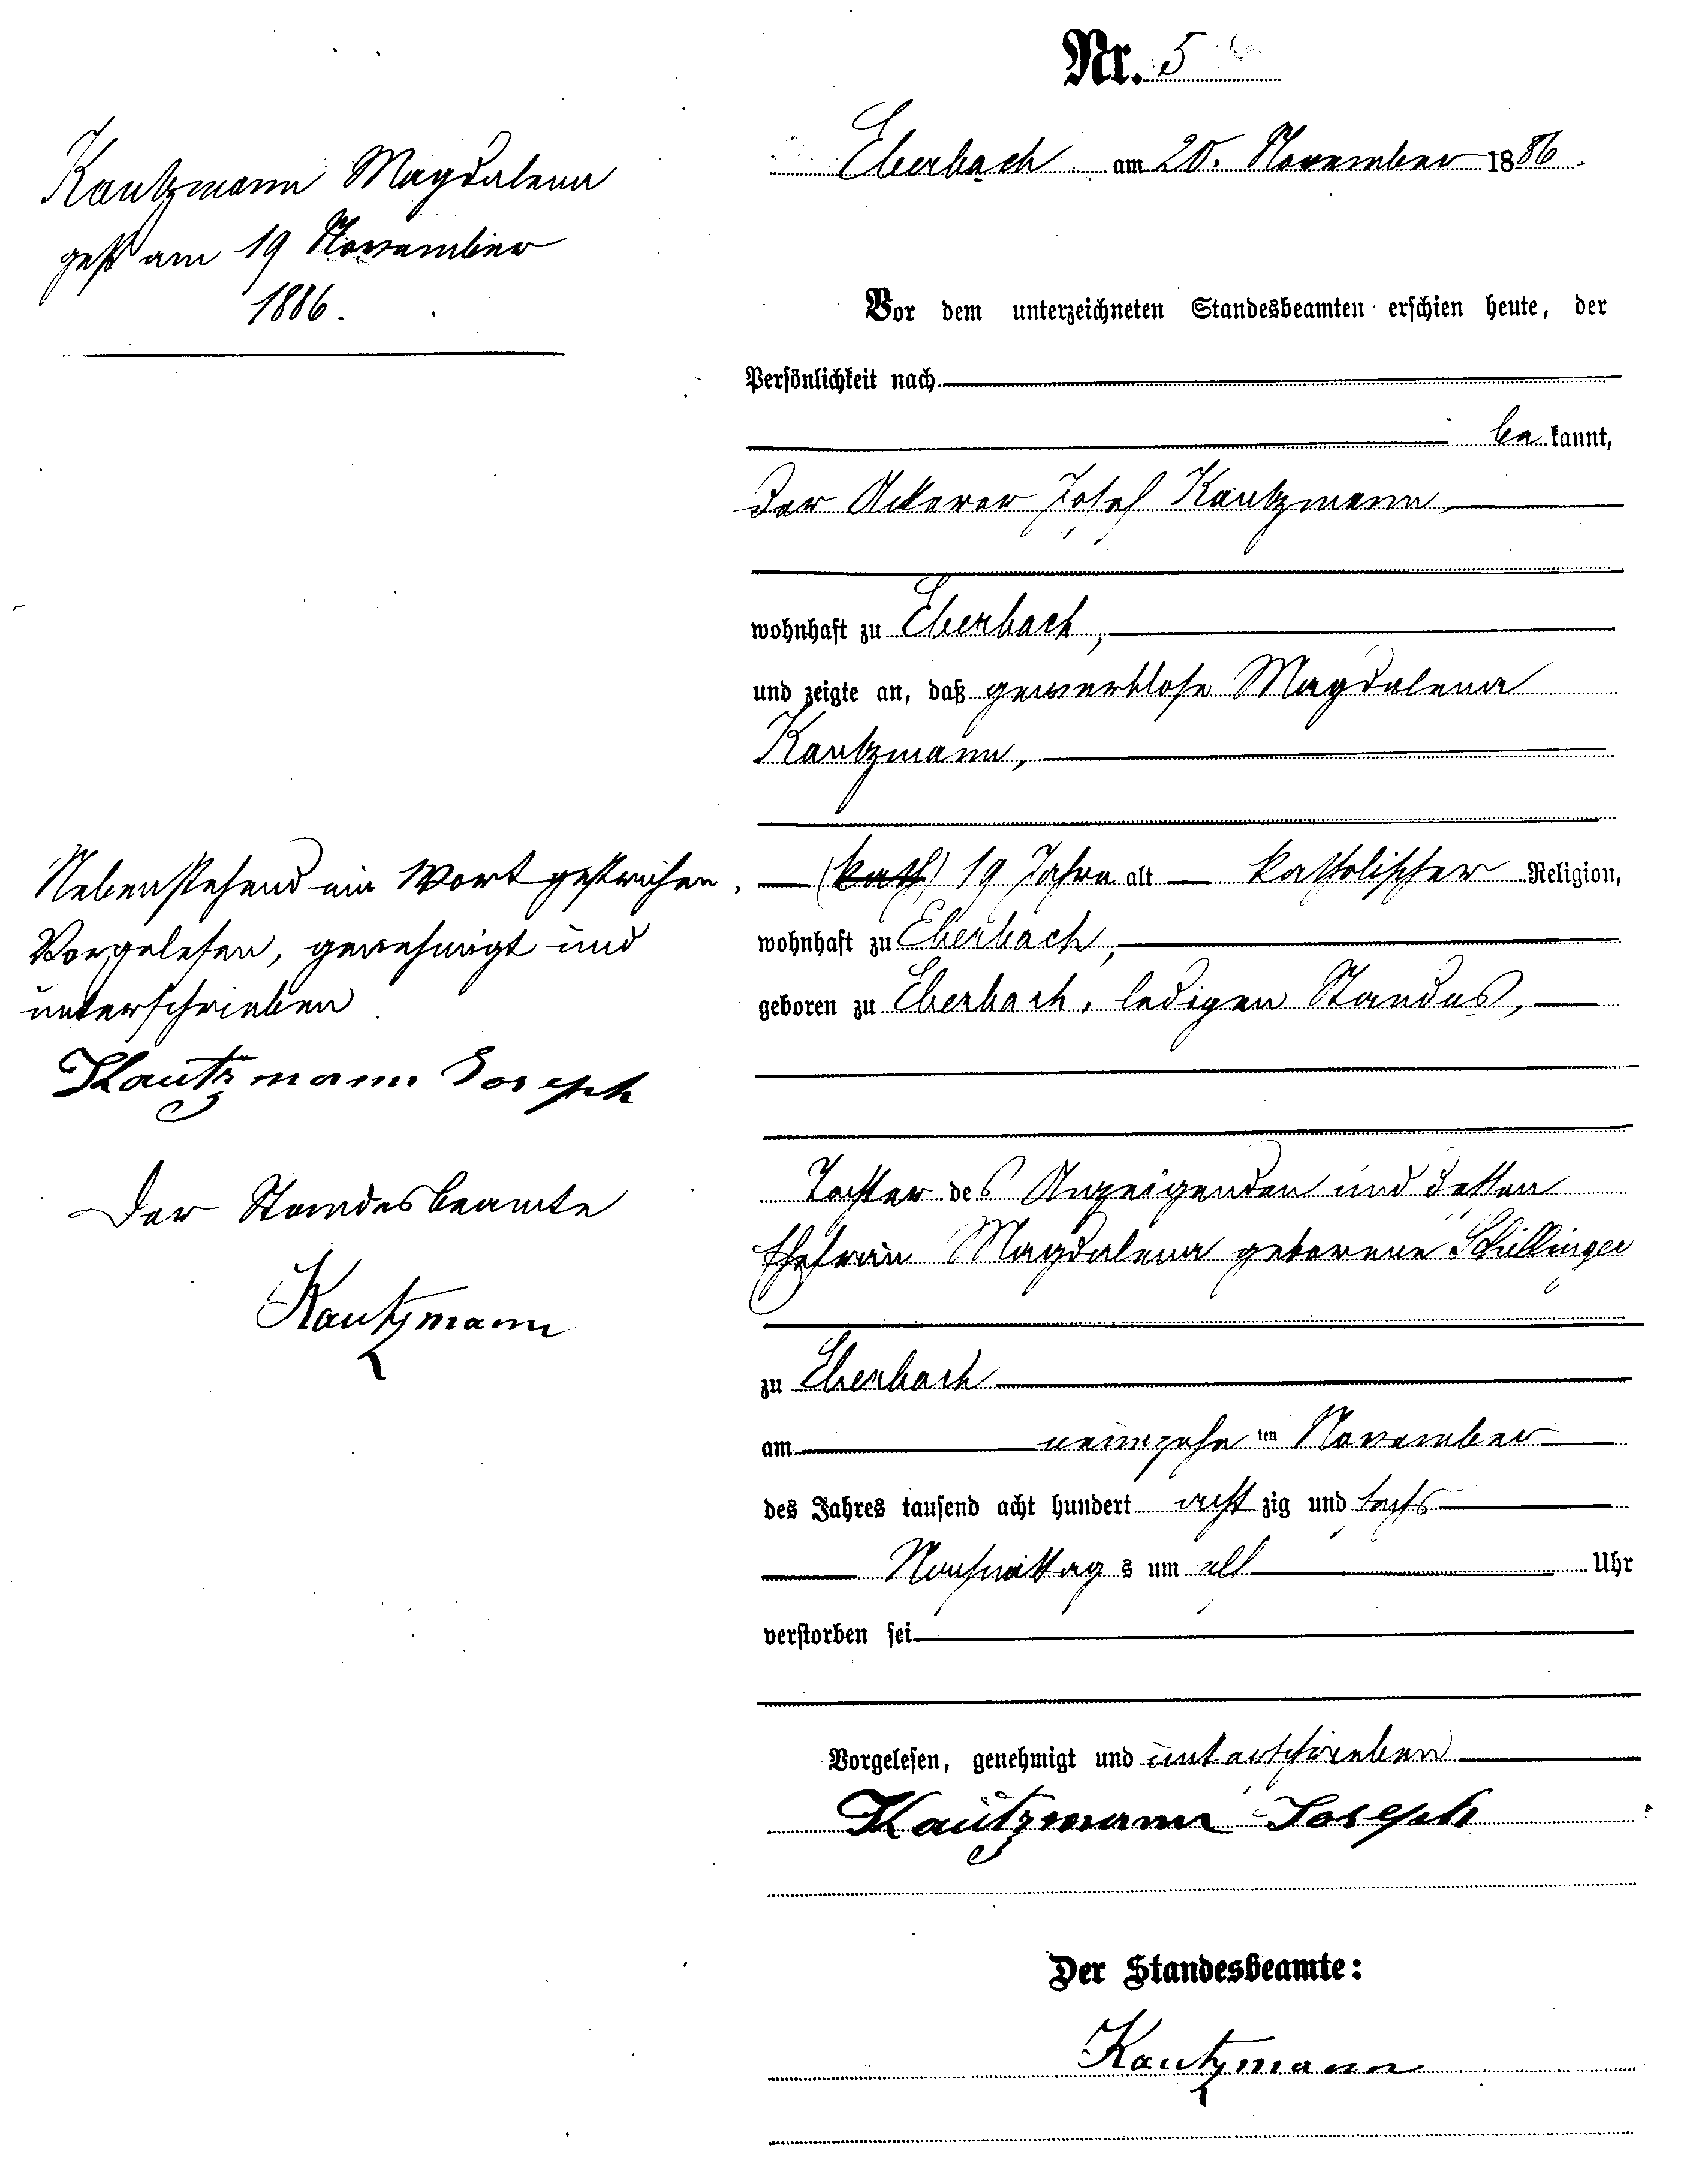 Nr. 5
Eberbach am 20. November 1886.
Kautzmann Magdalena
gest am 19 November
1886.
Vor dem unterzeichneten Standesbeamten erschien heute, der
Persönlichkeit nach
be kannt,
der Ackerer Josef Kautzmann,
wohnhaft zu Eberbach,
und zeigte an, daß gewerblose Magdalena
Kautzmann,
(kath) 19 Jahre alt katholischer Religion,
wohnhaft zu Eberbach,
geboren zu Eberbach, ledigen Standes,
Tochter des Anzeigenden und dessen
Ehefrau Magdalena geborene Schillinger
zu Eberbach
am neunzehn ten November
des Jahres tausend acht hundert acht zig und sechs
Nachmittag s um elf Uhr
verstorben sei
Vorgelesen, genehmigt und unterschrieben
Kautzmann Joseph
Der Standesbeamte:
Kautzmann
Nebenstehend ein Wort gestrichen.
Vorgelesen, genehmigt und
unterschrieben
Kautzmann Joseph
Der Standesbeamte
Kautzmann